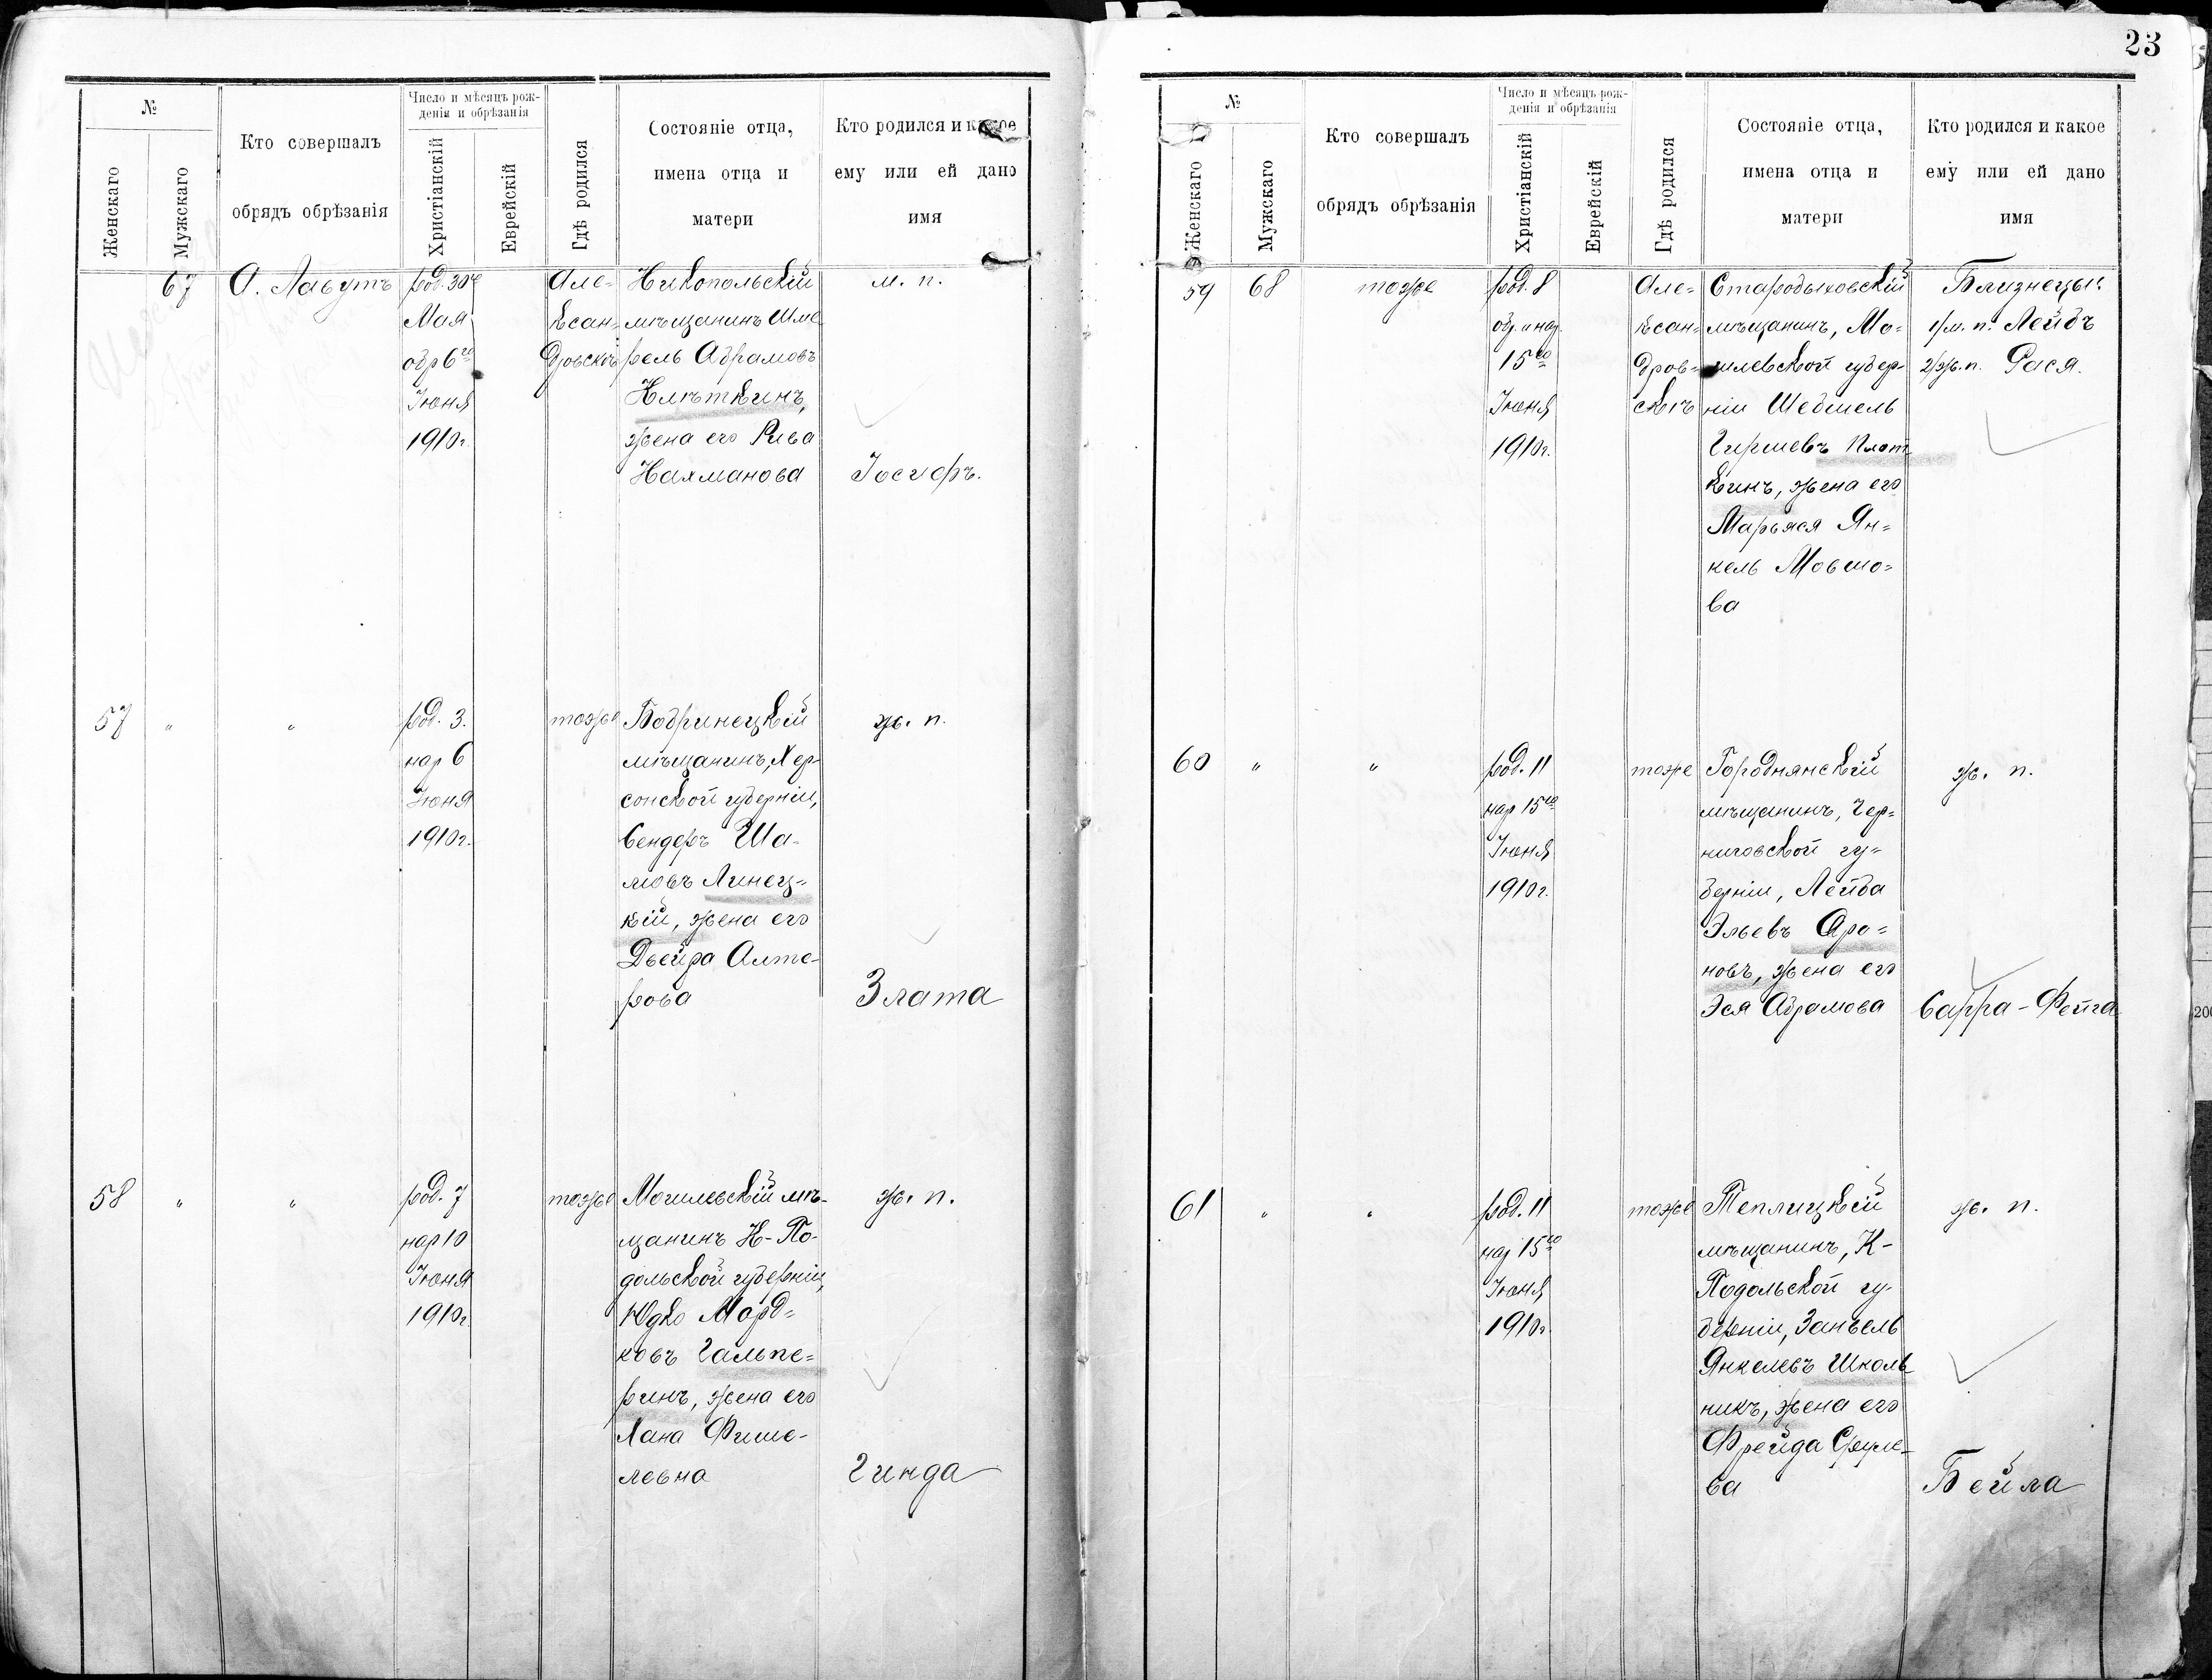 23
№
Женскаго
Мужскаго
Кто совершалъ
обрядъ обрѣзанія
Число и мѣсяцъ рож-
денія и обрѣзанія
Христіанскій
Еврейскій
Гдѣ родился
Состояніе отца,
имена отца и
матери
Кто родился и какое
ему или ей дано
имя
67
О. Лавутъ
род. 30го
Мая
обр 6го
Іюня
1910г.
Але-
ксан-
дровскѣ
Никопольскій
мѣщанинъ Шме
рель Абрамовъ
Нлѣткинъ,
жена его Рива
Нахманова
м. п.
Іосифъ.
57 " "
род. 3.
нар 6
Іюня
1910г.
тоже
Бобринецкій
мѣщанинъ, Хер-
сонской губерніи,
Сендеръ Ша-
мовъ Линец-
кій, жена его
Двейра Алте-
рова
ж. п.
Злата
58 " "
род. 7
нар 10
Іюня
1910г.
тоже
Могилевскій мѣ-
щанинъ Н-По-
дольской губерніи,
Юдко Морд-
ковъ Гальпе-
ринъ, жена его
Хана Фише-
левна
ж. п.
Гинда
№
Женскаго
Мужскаго
Кто совершалъ
обрядъ обрѣзанія
Число и мѣсяцъ рож-
денія и обрѣзанія
Христіанскій
Еврейскій
Гдѣ родился
Состояніе отца,
имена отца и
матери
Кто родился и какое
ему или ей дано
имя
59 68
тоже
род. 8
обр. и нар.
15го
Іюня
1910г.
Але-
ксан-
дров-
скѣ
Стародыховскій
мѣщанинъ, Мо-
гилевской губер-
ніи Шебшель
Гиршевъ Плот
кинъ, жена его
Марьяся Ян-
кель Мовшо-
ва
Близнецы:
1/м. п. Лейбъ
2/ж. п. Рася.
60 " "
род. 11
нар 15го
Іюня
1910г.
тоже
Городнянскій
мѣщанинъ, Чер-
ниговской гу-
берніи, Лейба
Эльевъ Аро-
новъ, жена его
Эся Абрамова
ж. п.
Сарра-Фейга
61 " "
род. 11
нар 15го
Іюня
1910г.
тоже
Теплицкій
мѣщанинъ, К-
Подольской гу-
берніи, Занвель
Янкелевъ Школь
никъ, жена его
Фрейда
ва
ж. п.
Бейла